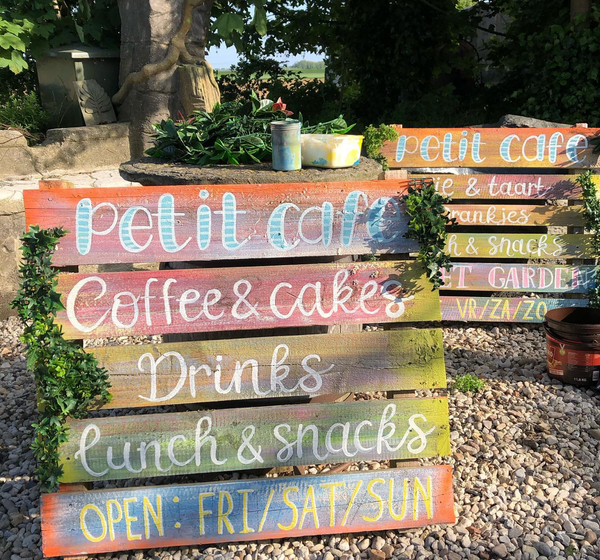 Petit cafe
Coffee & cakes
Drinks
Lunch & snacks
OPEN: FRI/SAT/SUN
Petit cafe
& taart
rankjes
& snacks
GARDEN
VR/ZA/ZO